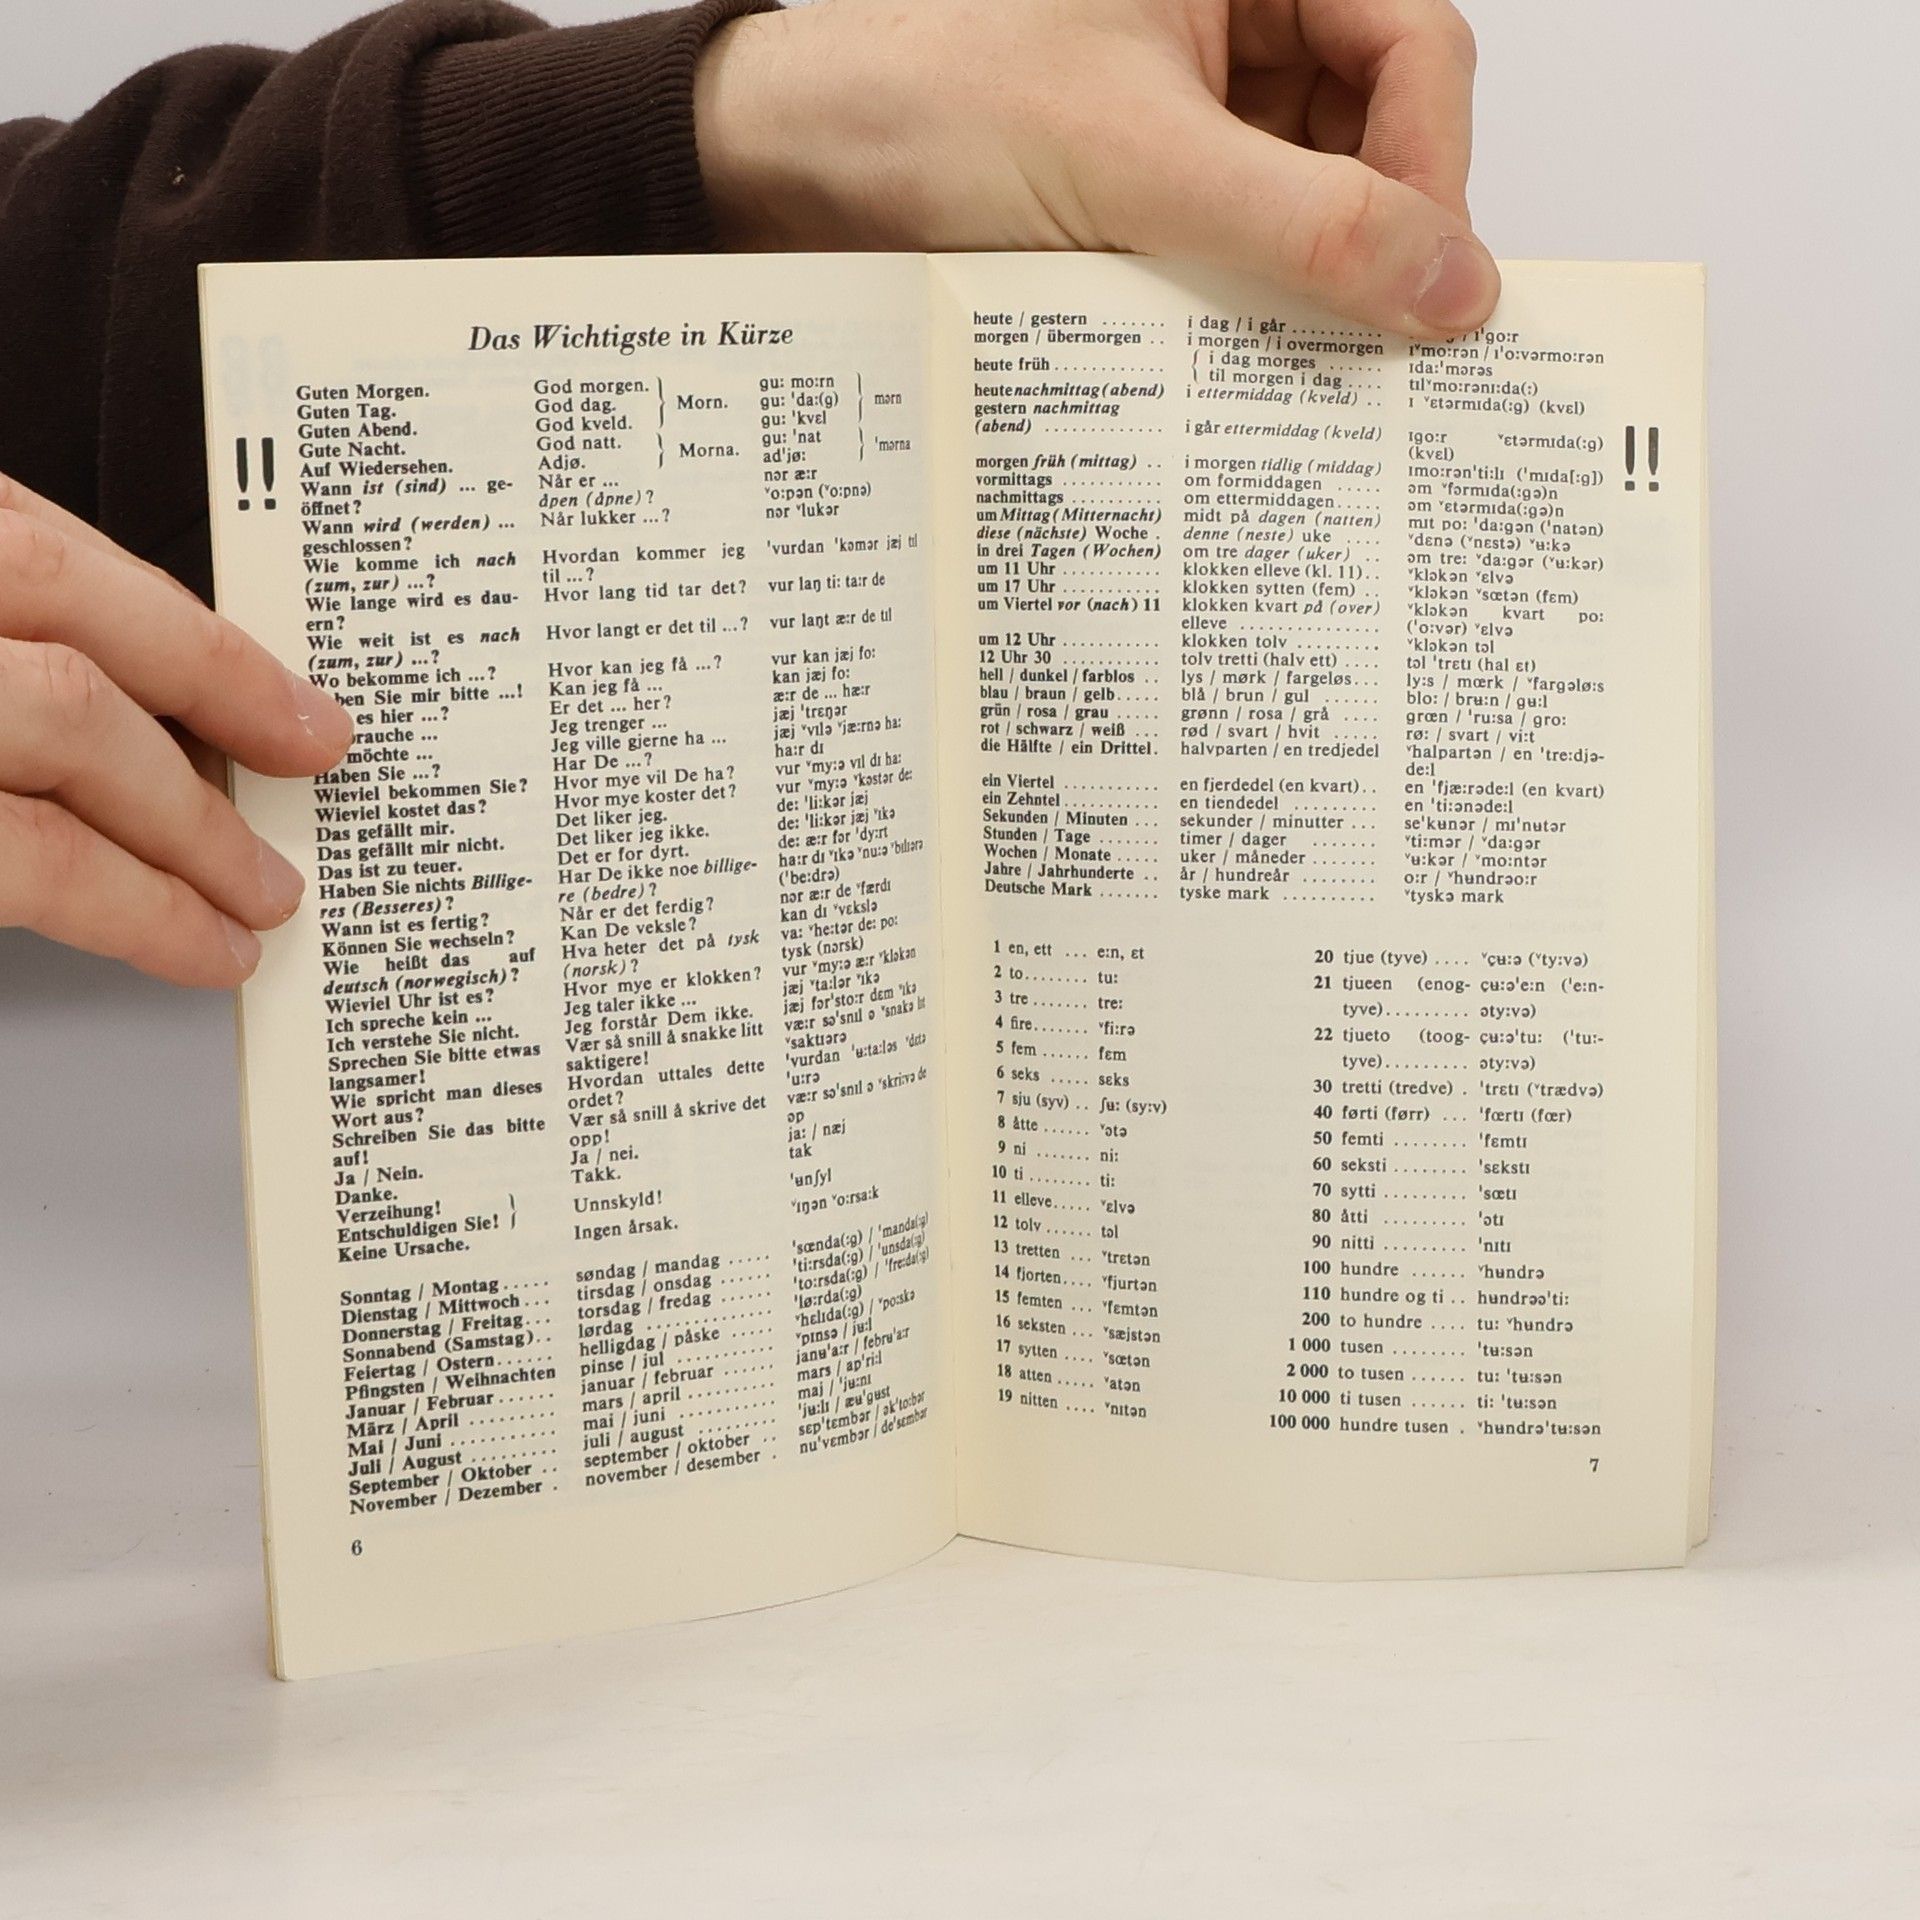 Das Wichtigste in Kürze
!!
Guten Morgen. God morgen. Morn. gu: mo:rn mɔrn
Guten Tag. God dag. gu: 'da:(g)
Guten Abend. God kveld. gu: 'kvɛl
Gute Nacht. God natt. Morna. gu: 'nat 'mɔrna
Auf Wiedersehen. Adjø. ad'jø:
Wann ist (sind) ... ge- Når er ... nɔr æ:r
öffnet? åpen (åpne)? ᵛo:pən (ᵛo:pnə)
Wann wird (werden) ... Når lukker ...? nɔr ᵛlukər
geschlossen?
Wie komme ich nach Hvordan kommer jeg 'vurdan 'kɔmər jæj til
(zum, zur) ...? til ...?
Wie lange wird es dau- Hvor lang tid tar det? vur laŋ ti: ta:r de
ern?
Wie weit ist es nach Hvor langt er det til ...? vur laŋt æ:r de til
(zum, zur) ...?
Wo bekomme ich ...? Hvor kan jeg få ...? vur kan jæj fo:
ben Sie mir bitte ...! Kan jeg få ... kan jæj fo:
es hier ...? Er det ... her? æ:r de ... hæ:r
rauche ... Jeg trenger ... jæj 'trɛŋər
möchte ... Jeg ville gjerne ha ... jæj ᵛvɪlə ᵛjæ:rnə ha:
Haben Sie ...? Har De ...? ha:r dɪ
Wieviel bekommen Sie? Hvor mye vil De ha? vur ᵛmy:ə vɪl dɪ ha:
Wieviel kostet das? Hvor mye koster det? vur ᵛmy:ə ᵛkɔstər de:
Das gefällt mir. Det liker jeg. de: 'li:kər jæj
Das gefällt mir nicht. Det liker jeg ikke. de: 'li:kər jæj ᵛɪkə
Das ist zu teuer. Det er for dyrt. de: æ:r fɔr 'dy:rt
Haben Sie nichts Billige- Har De ikke noe billige- ha:r dɪ ᵛɪkə ᵛnu:ə ᵛbɪlɪərə
res (Besseres)? re (bedre)? ('be:drə)
Wann ist es fertig? Når er det ferdig? nɔr æ:r de ᵛfærdɪ
Können Sie wechseln? Kan De veksle? kan dɪ ᵛvɛkslə
Wie heißt das auf Hva heter det på tysk va: ᵛhe:tər de: po:
deutsch (norwegisch)? (norsk)? tysk (nɔrsk)
Wieviel Uhr ist es? Hvor mye er klokken? vur ᵛmy:ə æ:r ᵛklɔkən
Ich spreche kein ... Jeg taler ikke ... jæj ᵛta:lər ᵛɪkə
Ich verstehe Sie nicht. Jeg forstår Dem ikke. jæj fɔr'sto:r dɛm ᵛɪkə
Sprechen Sie bitte etwas Vær så snill å snakke litt væ:r sɔ'snɪl ɔ ᵛsnakə lɪt
langsamer! saktigere! ᵛsaktɪərə
Wie spricht man dieses Hvordan uttales dette 'vurdan 'ʉ:ta:ləs ᵛdɛtə
Wort aus? ordet? 'u:rə
Schreiben Sie das bitte Vær så snill å skrive det væ:r sɔ'snɪl ɔ ᵛskri:və de
auf! opp! ɔp
Ja / Nein. Ja / nei. ja: / næj
Danke. Takk. tak
Verzeihung! Unnskyld! 'ʉnʃyl
Entschuldigen Sie!
Keine Ursache. Ingen årsak. ᵛɪŋən ᵛo:rsa:k
Sonntag / Montag..... søndag / mandag ..... 'sœnda(:g) / 'manda(:g)
Dienstag / Mittwoch... tirsdag / onsdag ...... 'ti:rsda(:g) / 'unsda(:g)
Donnerstag / Freitag... torsdag / fredag ...... 'to:rsda(:g) / 'fre:da(:g)
Sonnabend (Samstag).. lørdag ............. 'lø:rda(:g)
Feiertag / Ostern...... helligdag / påske ..... ᵛhɛlɪda(:g) / ᵛpo:skə
Pfingsten / Weihnachten pinse / jul ........... ᵛpɪnsə / jʉ:l
Januar / Februar ...... januar / februar ...... janʉ'a:r / febrʉ'a:r
März / April ......... mars / april .......... mars / ap'ri:l
Mai / Juni ........... mai / juni ........... maj / 'jʉ:nɪ
Juli / August ......... juli / august ......... 'jʉ:lɪ / æʉ'gʉst
September / Oktober .. september / oktober .. sɛp'tɛmbər / ɔk'to:bər
November / Dezember . november / desember . nu'vɛmbər / de'sɛmbər
6
heute / gestern ....... i dag / i går .......... / ɪ'go:r
morgen / übermorgen .. i morgen / i overmorgen ɪᵛmo:rən / ɪ'o:vərmo:rən
heute früh ............ i dag morges ...... ɪda:'mɔrəs
til morgen i dag .... tɪlᵛmo:rənɪ:da(:)
heute nachmittag (abend) i ettermiddag (kveld) .. ɪ ᵛɛtərmɪda(:g) (kvɛl)
gestern nachmittag
(abend) ............. i går ettermiddag (kveld) ɪgo:r ᵛɛtərmɪda(:g)
(kvɛl)
morgen früh (mittag) .. i morgen tidlig (middag) ɪmo:rən'ti:lɪ ('mɪda[:g])
vormittags ........... om formiddagen ..... ɔm ᵛfɔrmɪda(:gə)n
nachmittags .......... om ettermiddagen..... ɔm ᵛɛtərmɪda(:gə)n
um Mittag (Mitternacht) midt på dagen (natten) mɪt po: 'da:gən ('natən)
diese (nächste) Woche . denne (neste) uke .... ᵛdɛnə (ᵛnɛstə) ᵛʉ:kə
in drei Tagen (Wochen) om tre dager (uker) .. ɔm tre: ᵛda:gər (ᵛʉ:kər)
um 11 Uhr ........... klokken elleve (kl. 11).. ᵛklɔkən ᵛɛlvə
um 17 Uhr ........... klokken sytten (fem) .. ᵛklɔkən ᵛsœtən (fɛm)
um Viertel vor (nach) 11 klokken kvart på (over) ᵛklɔkən kvart po:
elleve .............. ('o:vər) ᵛɛlvə
um 12 Uhr ........... klokken tolv ......... ᵛklɔkən tɔl
12 Uhr 30 ........... tolv tretti (halv ett) .... tɔl 'trɛtɪ (hal ɛt)
hell / dunkel / farblos .. lys / mørk / fargeløs... ly:s / mœrk / ᵛfargəlø:s
blau / braun / gelb..... blå / brun / gul ...... blo: / brʉ:n / gʉ:l
grün / rosa / grau ..... grønn / rosa / grå .... grœn / 'ru:sa / gro:
rot / schwarz / weiß ... rød / svart / hvit ..... rø: / svart / vi:t
die Hälfte / ein Drittel. halvparten / en tredjedel ᵛhalpartən / en 'tre:djə-
de:l
ein Viertel ........... en fjerdedel (en kvart).. en 'fjæ:rəde:l (en kvart)
ein Zehntel........... en tiendedel ......... en 'ti:ənəde:l
Sekunden / Minuten ... sekunder / minutter ... se'kʉnər / mɪ'nʉtər
Stunden / Tage ....... timer / dager ....... ᵛti:mər / ᵛda:gər
Wochen / Monate ..... uker / måneder ....... ᵛʉ:kər / ᵛmo:ntər
Jahre / Jahrhunderte .. år / hundreår ........ o:r / ᵛhʉndrəo:r
Deutsche Mark ....... tyske mark .......... ᵛtyskə mark
!!
1 en, ett ... e:n, ɛt
2 to....... tu:
3 tre ....... tre:
4 fire....... ᵛfi:rə
5 fem ...... fɛm
6 seks ..... sɛks
7 sju (syv) .. ʃʉ: (sy:v)
8 åtte ...... ᵛɔtə
9 ni ....... ni:
10 ti ........ ti:
11 elleve..... ᵛɛlvə
12 tolv ...... tɔl
13 tretten ... ᵛtrɛtən
14 fjorten.... ᵛfjurtən
15 femten ... ᵛfɛmtən
16 seksten ... ᵛsæjstən
17 sytten .... ᵛsœtən
18 atten ..... ᵛatən
19 nitten .... ᵛnɪtən
20 tjue (tyve) .... ᵛçʉ:ə (ᵛty:və)
21 tjueen (enog- çʉ:ə'e:n ('e:n-
tyve)......... əty:və)
22 tjueto (toog- çʉ:ə'tu: ('tu:-
tyve)......... əty:və)
30 tretti (tredve) . 'trɛtɪ (ᵛtrædvə)
40 førti (førr) ... 'fœrtɪ (fœr)
50 femti ........ 'fɛmtɪ
60 seksti ........ 'sɛkstɪ
70 sytti ......... 'sœtɪ
80 åtti ......... 'ɔtɪ
90 nitti ......... 'nɪtɪ
100 hundre ...... ᵛhʉndrə
110 hundre og ti .. hʉndrəɔ'ti:
200 to hundre .... tu: ᵛhʉndrə
1 000 tusen ........ 'tʉ:sən
2 000 to tusen ...... tu: 'tʉ:sən
10 000 ti tusen ...... ti: 'tʉ:sən
100 000 hundre tusen . ᵛhʉndrə'tʉ:sən
7